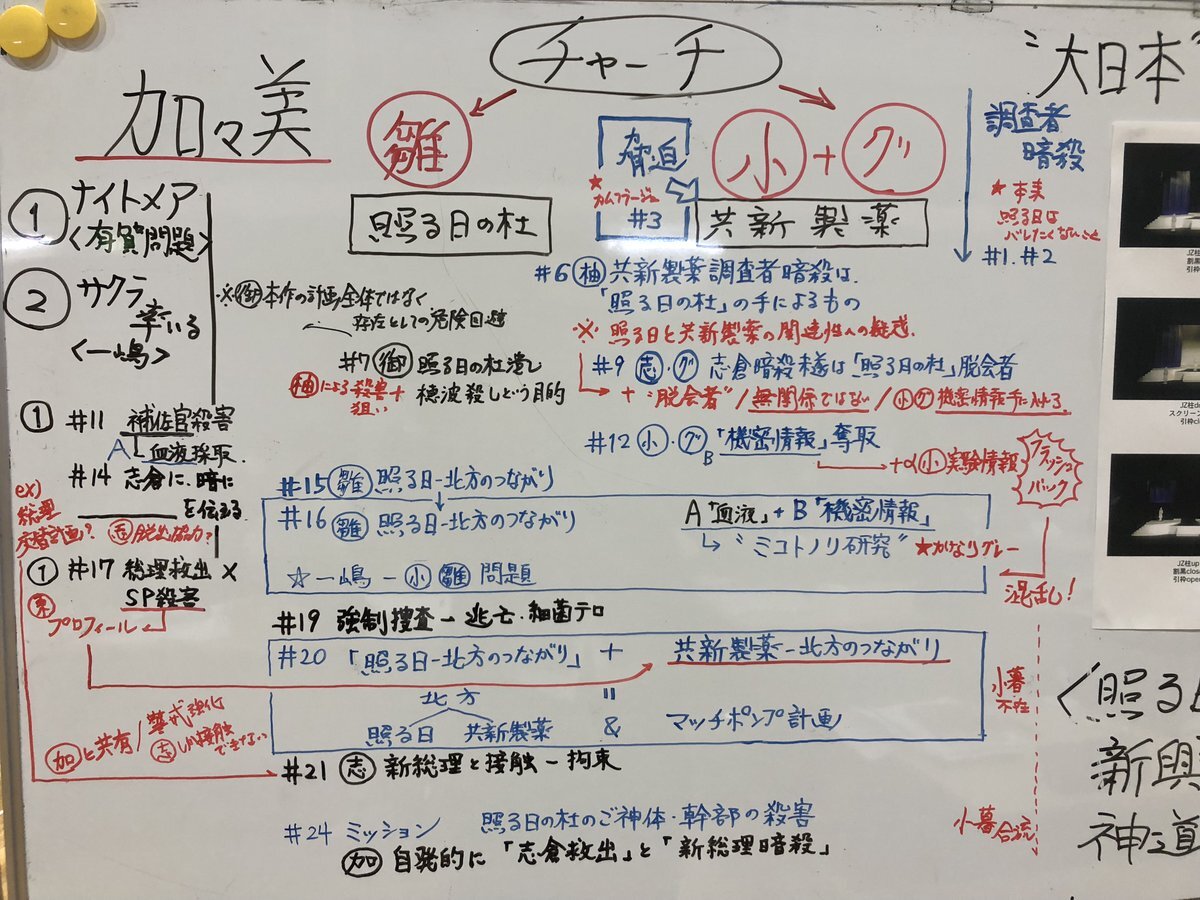 チャーチ
加々美
雛
脅迫
小+グ
★カムフラージュ
#3
照る日の杜
共新製薬
"大日本"
調査者
暗殺
★本来
照る日は
バレたくないこと
#1.#2
①ナイトメア
<有賀問題>
②サクラ
率いる
<一嶋>
①#11 補佐官殺害
A 血液採取.
#14 志倉に、暗に
を伝える
ex)
総理
交替計画? 志脱出協力?
①#17 総理救出×
SP殺害
プロフィール
※御本作の計画全体ではなく
存在としての危険回避
#7御 照る日の杜潰し
穂波殺しという目的
柚による殺害+
狙い
#6柚共新製薬調査者暗殺は、
「照る日の杜」の手によるもの
※ 照る日と共新製薬の関連性への疑惑.
#9 志・グ 志倉暗殺未遂は「照る日の杜」脱会者
+"脱会者"/無関係ではない/小グ機密情報手に入れる
#12 小・グ「機密情報」奪取
B
+α小実験情報
フラッシュ
バック
#15雛照る日-北方のつながり
#16 雛 照る日-北方のつながり
A「血液」+B「機密情報」
"ミコトノリ研究" ★かなりグレー
☆一嶋-小雛問題
混乱!
#19 強制捜査-逃亡・細菌テロ
#20 「照る日-北方のつながり」+ 共新製薬-北方のつながり
北方 =
照る日 共新製薬 & マッチポンプ計画
小暮
不在
加と共有/警戒強化
志しか接触
できない
#21志 新総理と接触-拘束
#24 ミッション 照る日の杜のご神体・幹部の殺害
加 自発的に「志倉救出」と「新総理暗殺」
小暮合流
<照る
新興
神道
JZ柱up
引枠open